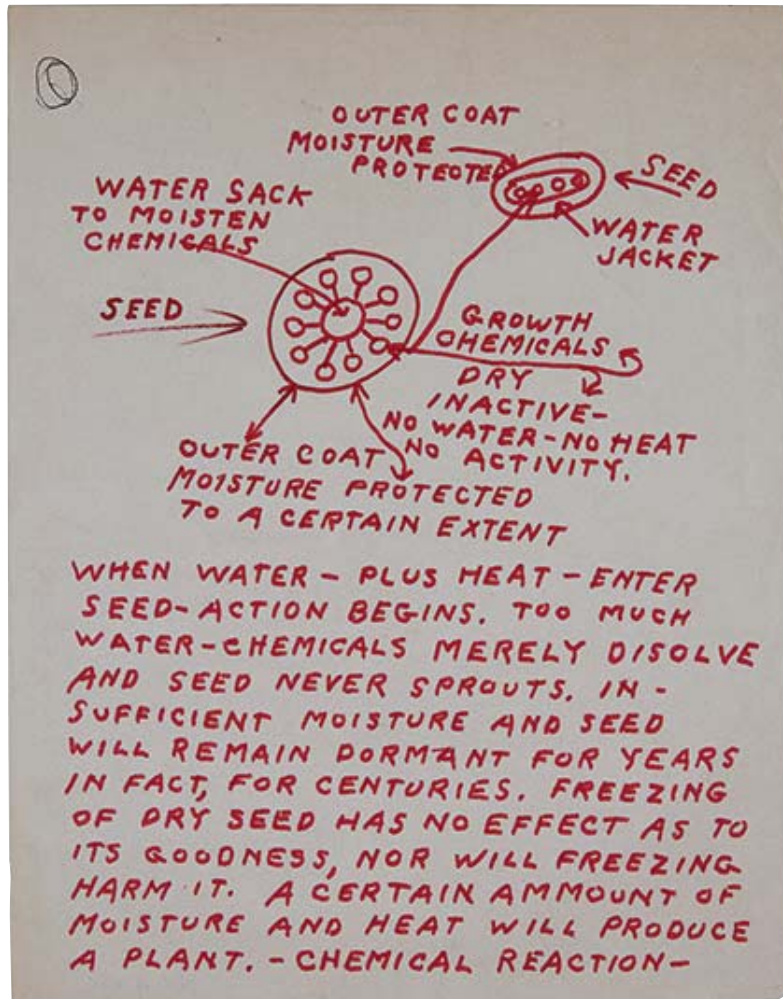 OUTER COAT
MOISTURE
PROTECTED
SEED
WATER
JACKET
WATER SACK
TO MOISTEN
CHEMICALS
SEED
GROWTH
CHEMICALS
DRY
INACTIVE-
NO WATER-NO HEAT
NO ACTIVITY.
OUTER COAT
MOISTURE PROTECTED
TO A CERTAIN EXTENT
WHEN WATER - PLUS HEAT - ENTER
SEED-ACTION BEGINS. TOO MUCH
WATER-CHEMICALS MERELY DISOLVE
AND SEED NEVER SPROUTS. IN -
SUFFICIENT MOISTURE AND SEED
WILL REMAIN DORMANT FOR YEARS
IN FACT, FOR CENTURIES. FREEZING
OF DRY SEED HAS NO EFFECT AS TO
ITS GOODNESS, NOR WILL FREEZING
HARM IT. A CERTAIN AMMOUNT OF
MOISTURE AND HEAT WILL PRODUCE
A PLANT. - CHEMICAL REACTION -